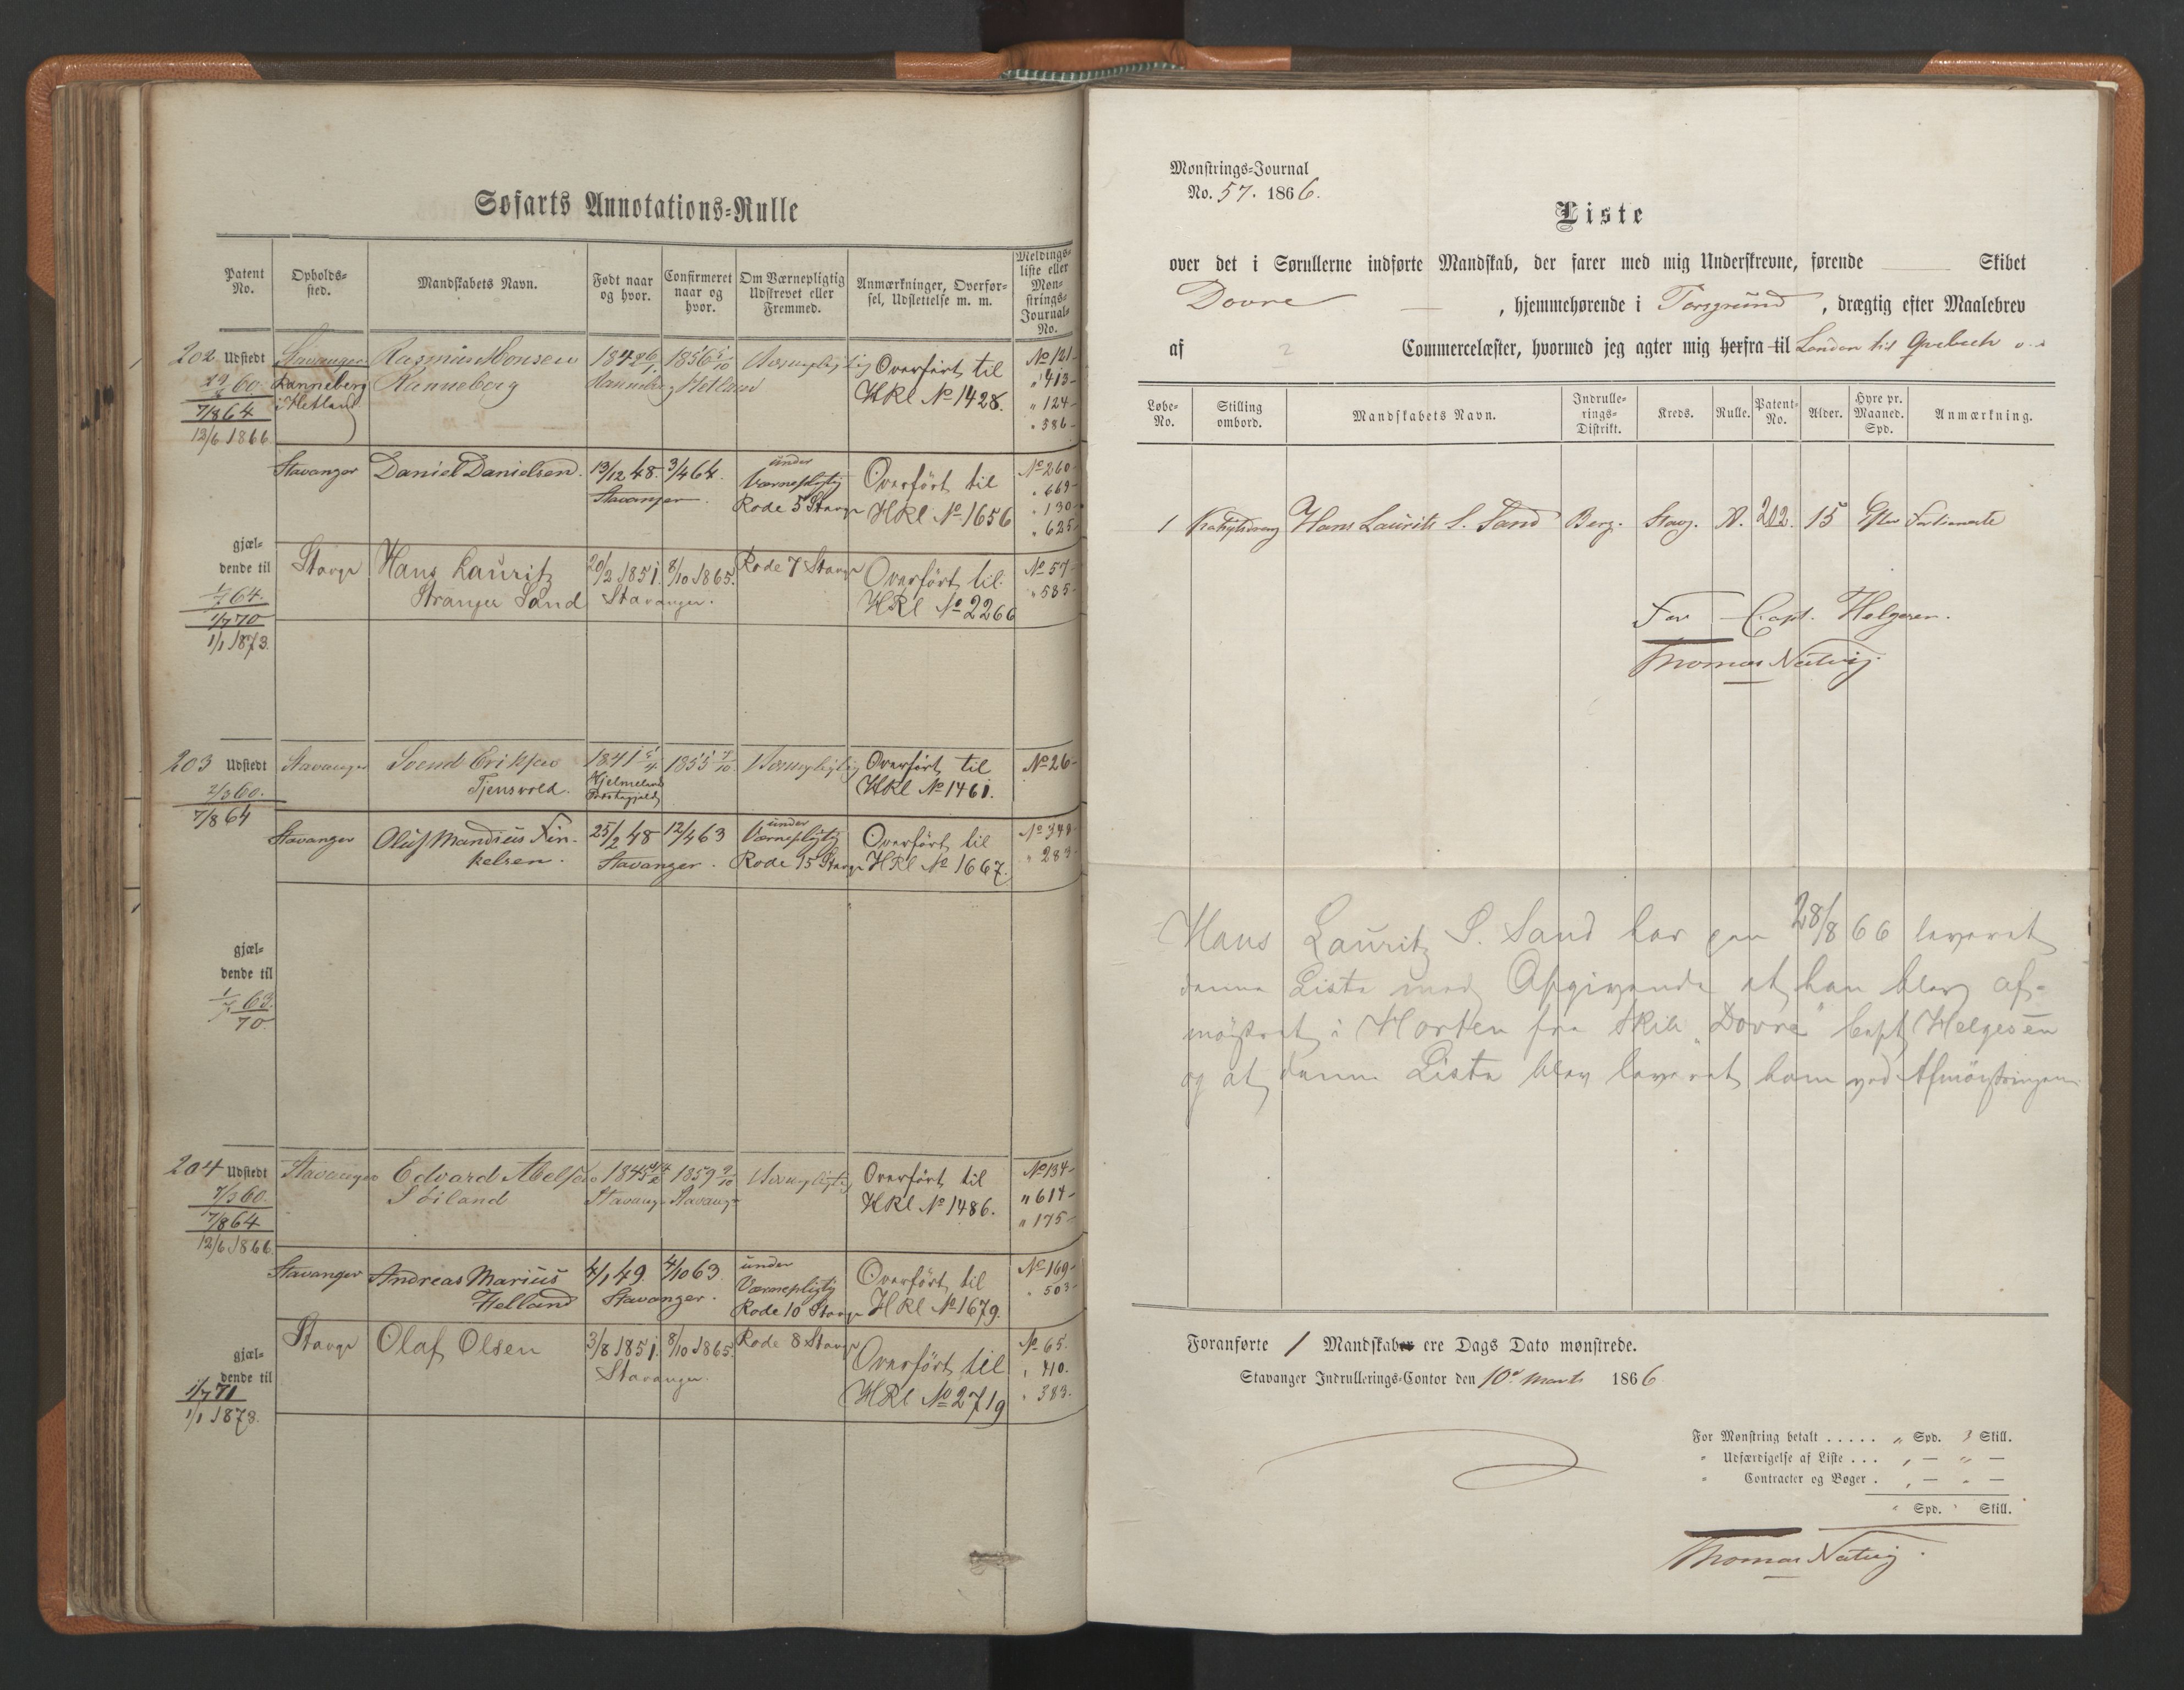 Søfarts Annotations-Rulle
Patent No.
Opholds-sted.
Mandskabets Navn.
Født naar og hvor.
Confirmeret naar og hvor.
Om Værnepligtig Udskrevet eller Fremmed.
Anmærkninger, Overførsel, Udslettelse m. m.
Meldings-liste eller Mønstrings-Journal-No.
202 Udstedt
7/8 64
12/6 1866
Stavanger
Ranneberg
i Hetland
Rasmus Monsen
Ranneberg
Hetland
Værnepligtig
Overført til
HRl No 1428.
No 121-
" 413-
" 124-
" 386-
Stavanger
Daniel Danielsen.
13/12 48.
Stavanger.
3/4 64.
under
Værnepligtig
Rode 5 Stavgr
Overført til
HRl No 1656
No 260-
" 669-
" 130-
" 625-
gjæl-
dende til
1/7 64.
1/7 70
1/1 1873.
Stavgr
Hans Lauritz
Stranger Sand
20/2 1851.
Stavanger.
8/10 1865.
Rode 7 Stavgr
Overført til
HRl No 2266
No 57-
" 585-
203 Udstedt
2/3 60.
7/8 64
Stavanger
Svend Eriksen
Tjensvold.
1841
Hjelmeland
Præstegjeld
1855
Værnepligtig
Overført til
HRl No 1461.
No 26-
Stavanger
Oluf Mandius Fin-
kelsen.
25/2 48
Stavanger.
12/4 63
under
Værnepligtig
Rode 15 Stavgr
Overført til
HRl No 1667.
No 348-
" 283-
gjæl-
dende til
1/7 63.
70
204 Udstedt
7/3 60.
17/8 64
12/6 1866.
Stavanger
Edvard Abelsen
Soiland
Stavangr
1859 9/10
Stavangr
Værnepligtig
Overført til
HRl No 1486.
No 134-
" 614-
" 175-
Stavanger
Andreas Marius
Helland
4/1 49
Stavanger.
4/10 63
under
Værnepligtig
Rode 10 Stavgr
Overført til
HRl No 1679.
No 169-
" 503-
gjæl-
dende til
1/7 71
1/1 1873.
Stavgr
Olaf Olsen
3/8 1851.
Stavanger.
8/10 1865.
Rode 8 Stavgr
Overført til
HRl No 2719
No 65.
" 410.
" 383.
Mønstrings-Journal
No. 57. 1866.
Liste
over det i Sørullerne indførte Mandskab, der farer med mig Underskrevne, førende Skibet
Dovre , hjemmehørende i Porsgrund , drægtig efter Maalebrev
af Commercelæster, hvormed jeg agter mig herfra til London til Quebech
Løbe-No.
Stilling ombord.
Mandskabets Navn.
Indrullerings-Distrikt.
Kreds.
Rulle.
Patent-No.
Alder.
Hyre pr. Maaned. Spd.
Anmærkning.
1 Kahytsdreng Hans Laurits S. Sand Berg. Stavg. A. 202. 15 Efter Fortieneste
For Capt. Helgesen.
Thomas Natvig.
Hans Lauritz S. Sand har paa 28/8 66 leveret
denne Liste med Opgivende at han blev af-
mønstret i Horten fra Skib "Dovre" Capt Helgesen
og at denne Liste blev leveret ham ved Afmønstringen
Foranførte 1 Mandskaber ere Dags Dato mønstrede.
Stavanger Indrullerings-Contor den 10de Marts 1866
For Mønstring betalt ..... " Spd. 3 Skill.
" Udfærdigelse af Liste ... " — " —
" Contracter og Bøger . " — " —
" Spd. " Skill.
Thomas Natvig.